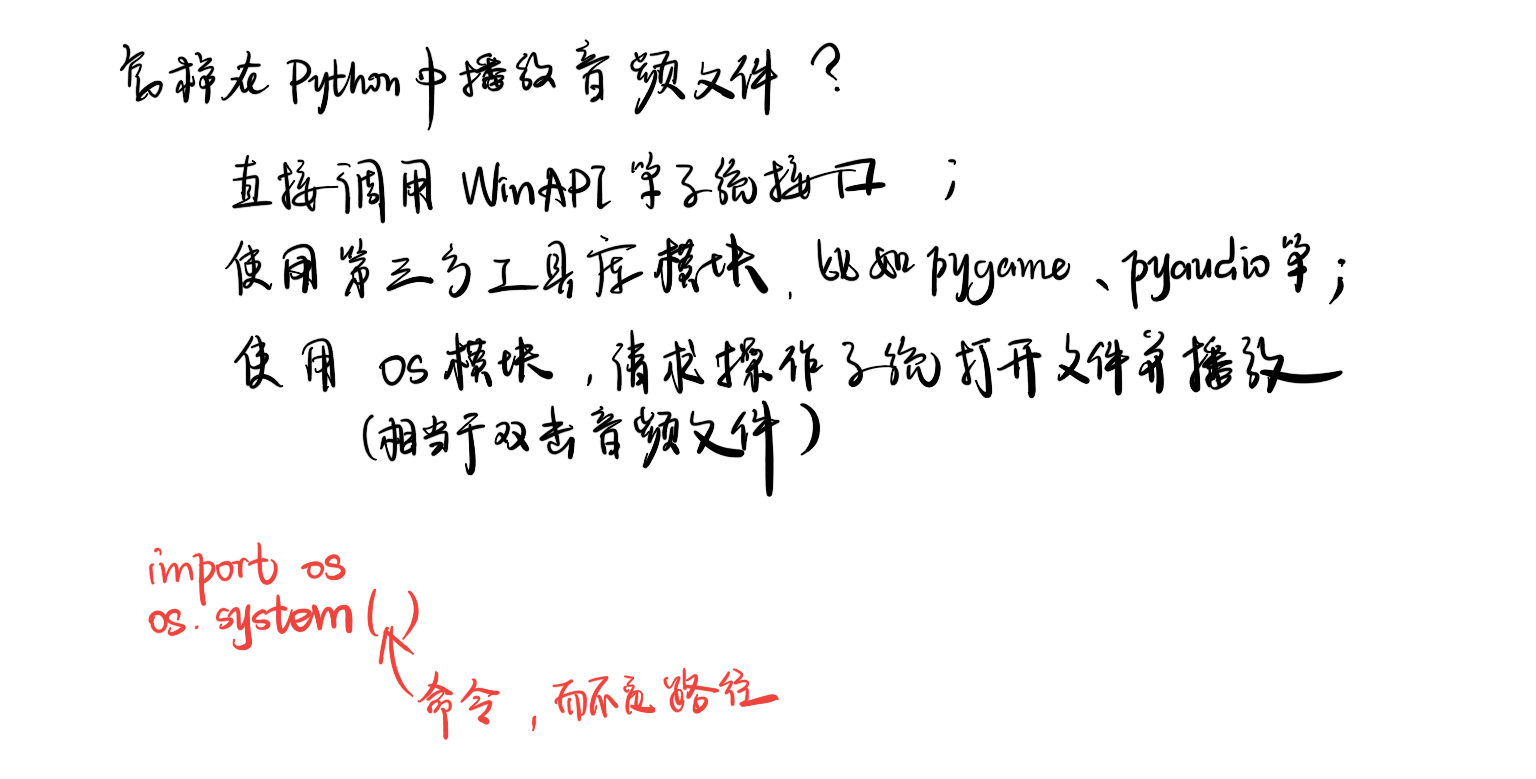 怎样在Python中播放音频文件？
直接调用WinAPI等系统接口；
使用第三方工具库模块，比如pygame、pyaudio等；
使用os模块，请求操作系统打开文件并播放
（相当于双击音频文件）
import os
os.system( )
命令，而不是路径